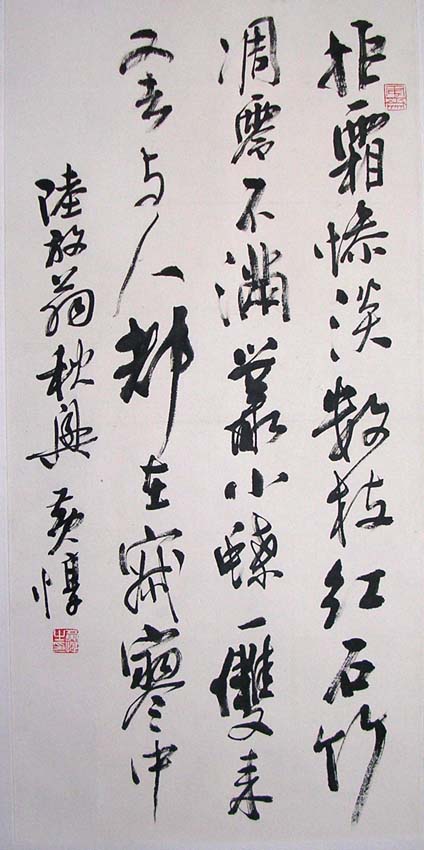 拒霜惨淡数枝红石竹
凋零不满叢小蝶一雙来
又去与人都在寂寥中
陸放翁秋興 黄惇